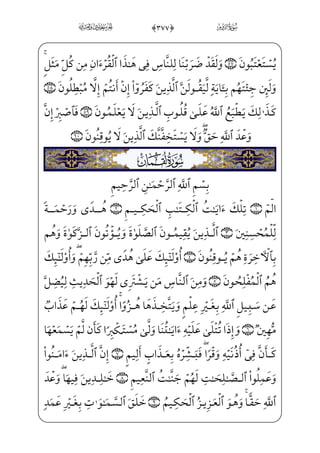 سُورَةُ الرُّومِ ﴿٣٧٧﴾ الجُزْءُ الحَادِي وَالعِشْرُونَ
يُسْتَعْتَبُونَ ۝ وَلَقَدْ ضَرَبْنَا لِلنَّاسِ فِي هَٰذَا الْقُرْءَانِ مِن كُلِّ مَثَلٍ ۚ
وَلَئِن جِئْتَهُم بِـَٔايَةٍ لَّيَقُولَنَّ الَّذِينَ كَفَرُوٓا۟ إِنْ أَنتُمْ إِلَّا مُبْطِلُونَ ۝
كَذَٰلِكَ يَطْبَعُ اللَّهُ عَلَىٰ قُلُوبِ الَّذِينَ لَا يَعْلَمُونَ ۝ فَاصْبِرْ إِنَّ
وَعْدَ اللَّهِ حَقٌّ ۖ وَلَا يَسْتَخِفَّنَّكَ الَّذِينَ لَا يُوقِنُونَ ۝
سُورَةُ لُقْمَانَ
بِسْمِ اللَّهِ الرَّحْمَٰنِ الرَّحِيمِ
الٓمٓ ۝ تِلْكَ ءَايَٰتُ الْكِتَٰبِ الْحَكِيمِ ۝ هُدًى وَرَحْمَةً
لِّلْمُحْسِنِينَ ۝ الَّذِينَ يُقِيمُونَ الصَّلَوٰةَ وَيُؤْتُونَ الزَّكَوٰةَ وَهُم
بِالْـَٔاخِرَةِ هُمْ يُوقِنُونَ ۝ أُو۟لَٰٓئِكَ عَلَىٰ هُدًى مِّن رَّبِّهِمْ ۖ وَأُو۟لَٰٓئِكَ
هُمُ الْمُفْلِحُونَ ۝ وَمِنَ النَّاسِ مَن يَشْتَرِي لَهْوَ الْحَدِيثِ لِيُضِلَّ
عَن سَبِيلِ اللَّهِ بِغَيْرِ عِلْمٍ وَيَتَّخِذَهَا هُزُوًا ۚ أُو۟لَٰٓئِكَ لَهُمْ عَذَابٌ
مُّهِينٌ ۝ وَإِذَا تُتْلَىٰ عَلَيْهِ ءَايَٰتُنَا وَلَّىٰ مُسْتَكْبِرًا كَأَن لَّمْ يَسْمَعْهَا
كَأَنَّ فِىٓ أُذُنَيْهِ وَقْرًا ۖ فَبَشِّرْهُ بِعَذَابٍ أَلِيمٍ ۝ إِنَّ الَّذِينَ ءَامَنُوا۟
وَعَمِلُوا۟ الصَّٰلِحَٰتِ لَهُمْ جَنَّٰتُ النَّعِيمِ ۝ خَٰلِدِينَ فِيهَا ۖ وَعْدَ
اللَّهِ حَقًّا ۚ وَهُوَ الْعَزِيزُ الْحَكِيمُ ۝ خَلَقَ السَّمَٰوَٰتِ بِغَيْرِ عَمَدٍ